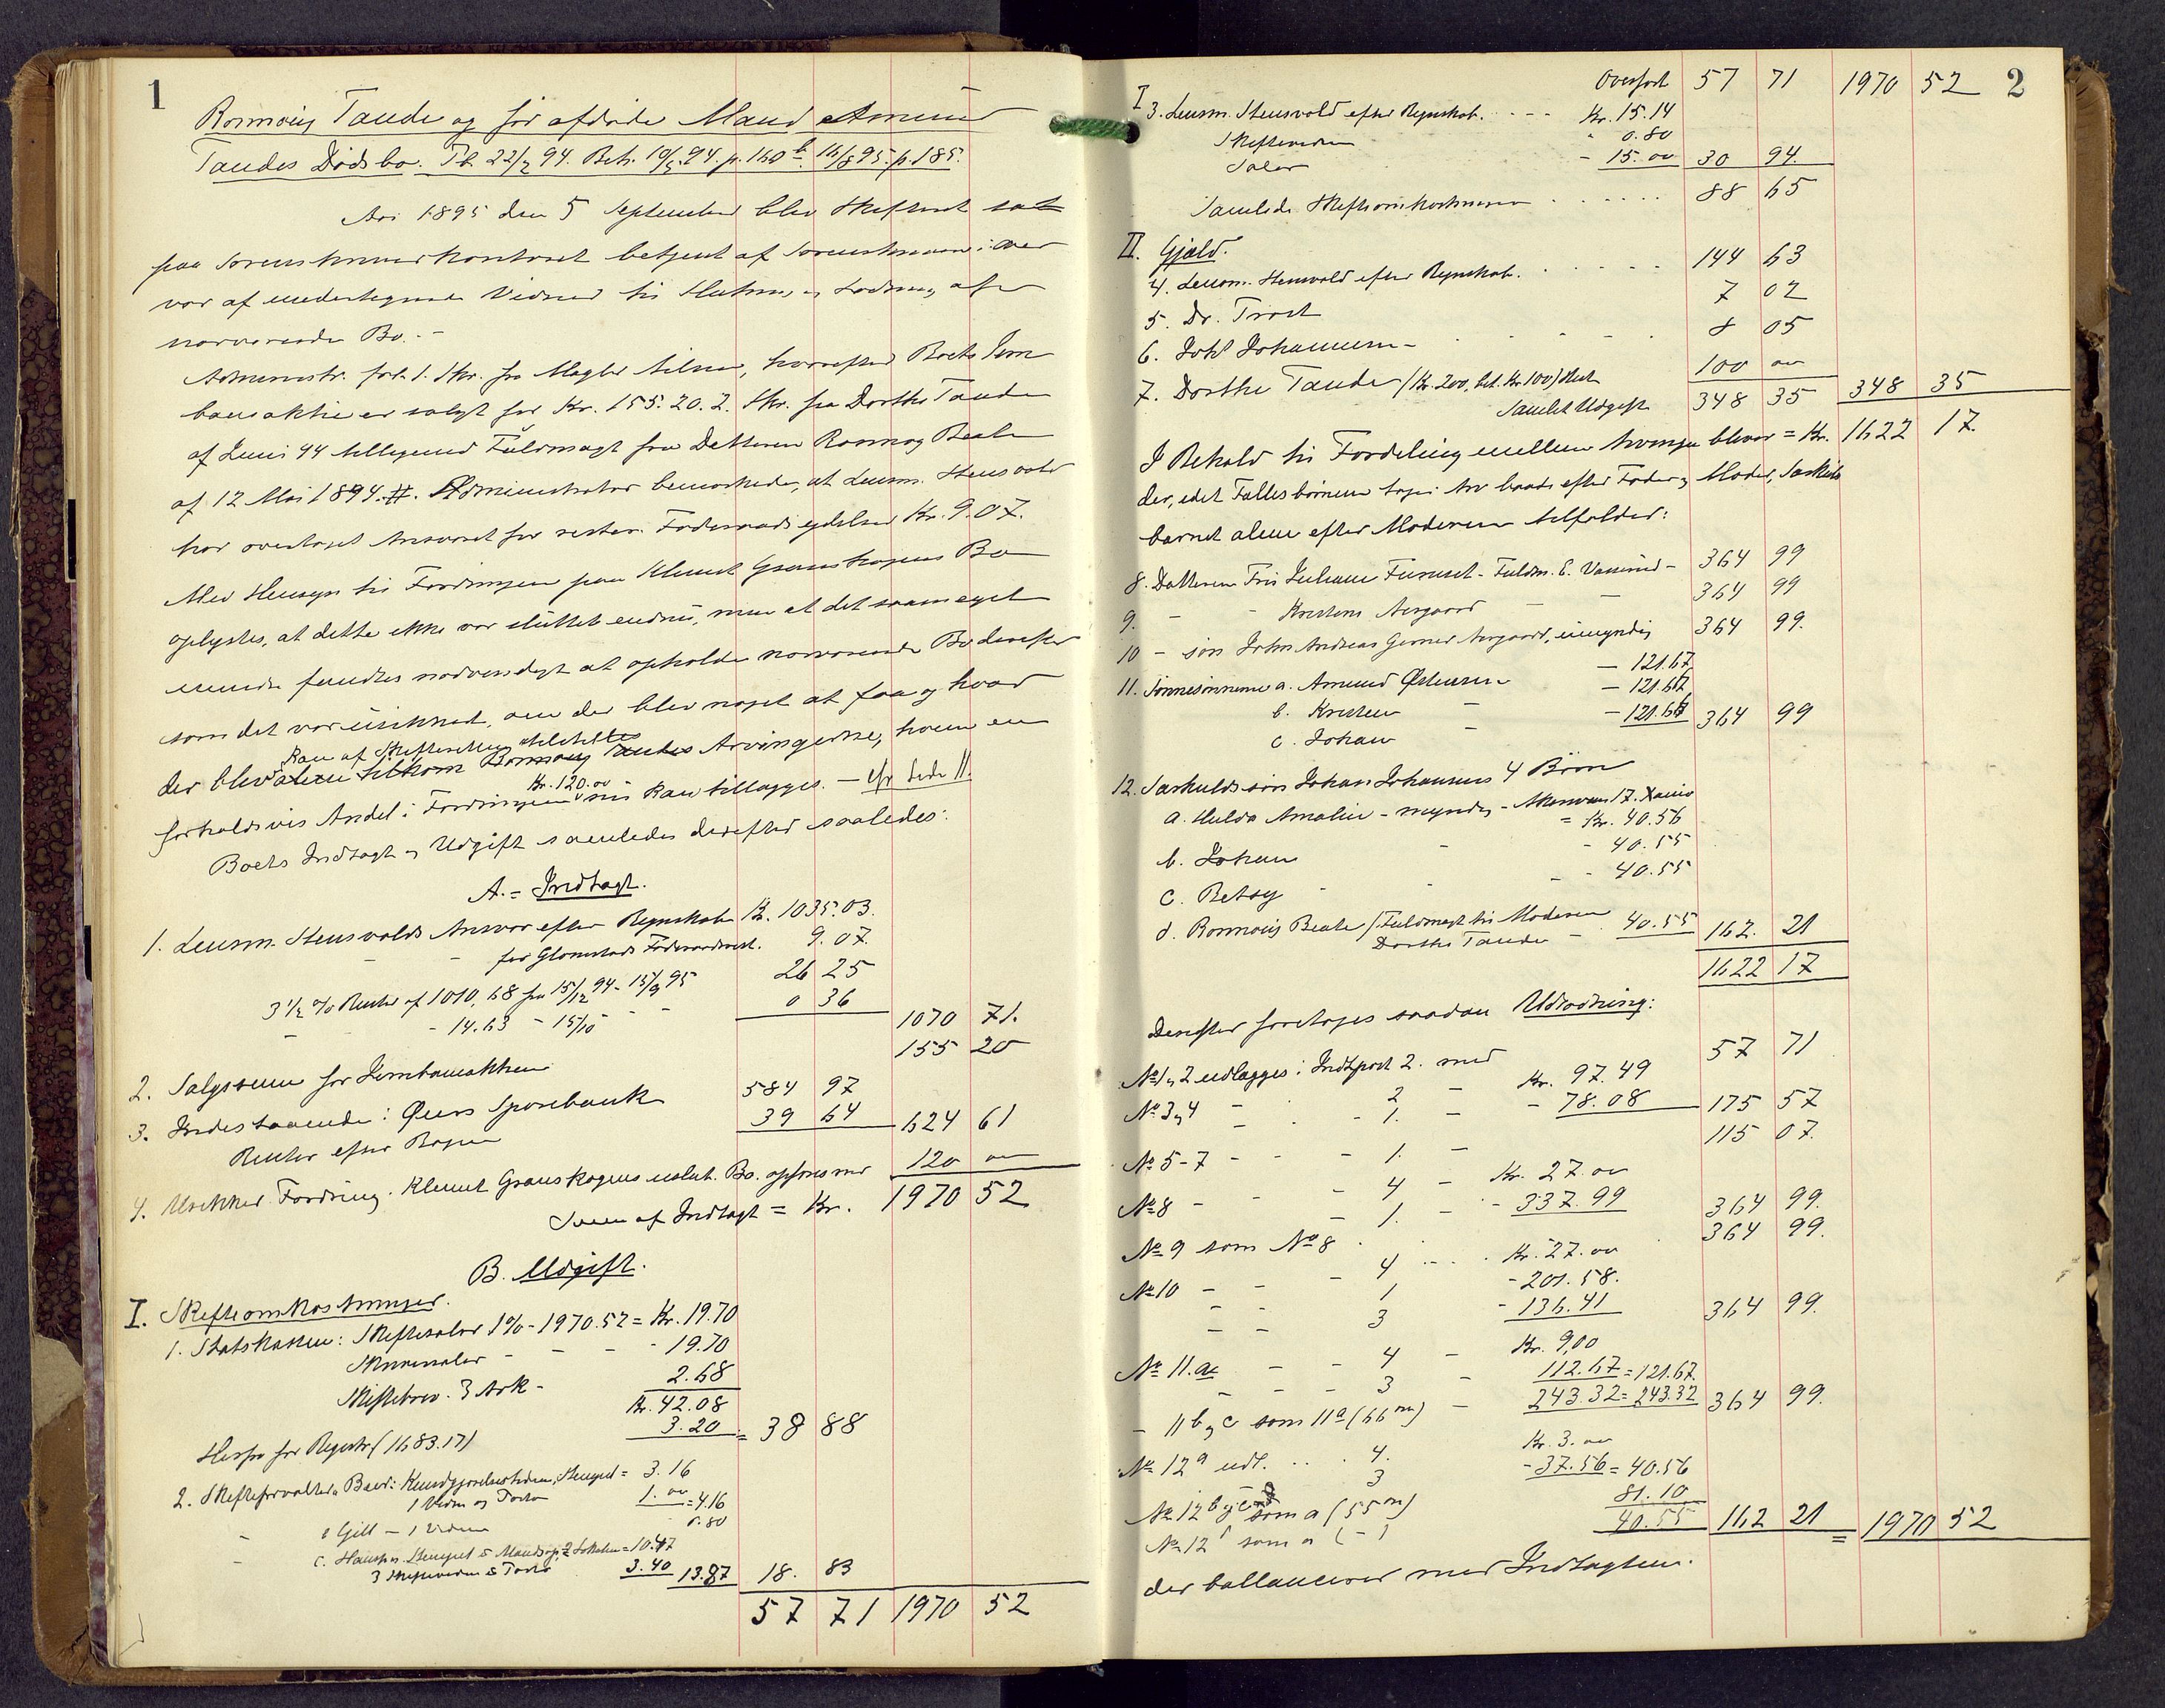 1
Ronnoug Taude og før afdøde Mand Amund
Taudes Dødsbo. Tb. 22/2 94. Beh. 10/5 94. p. 160 b. 16/8 95. p. 185.
Aar 1895 den 5 September blev Skifteret sat
paa Sorenskriverkontoret betjent af Sorenskriveren i Over
vær af undertegnede Vidner til Slutning og Lodning af
nærværende Bo. -
Administr. frl. 1. Skr. fra Megler Nilsen, hvorefter Boets Jern
baneaktie er solgt for Kr. 155.20. 2. Skr. fra Dorthe Taude
af Juni 94 vedlagt Fuldmagt fra Datteren Ronnoug Beate
af 12 Mai 1894. #. Administrator bemærkede, at Lensm. Stensvold
har overtaget Ansvaret for rester. Føderaadsydelser Kr. 9.07.
Med Hensyn til Fordringen paa Klemet Granskogens Bo
oplystes, at dette ikke var sluttet endnu, men at det saameget
mindre fandtes nødvendigt at opholde nærværende Bo derefter
som det var usikkert, om der blev noget at faa og hvad
Kan af Skifteretten
der blev alene tilkom Ronnoug Taudes Arvingerne, hvem en
Kr. 120.00
forholdsvis Andel i Fordringen nu kan tillægges. - cfr Side 11.
Boets Indtægt og Udgift samledes derefter saaledes:
A. = Indtægt.
1. Lensm. Stensvolds Ansvar efter Regnskab Kr. 1035.03.
- - for Glomstads Føderaadsrest. 9.07.
3 1/2 % Renter af 1010,68 fra 15/12 94 - 15/9 95 26 25
- - 14.63 - 15/10 - - 0 36 1070 71.
2. Salgssum for Jernbaneaktien 155 20
3. Indestaaende i Øiers Sparebank 584 97
Renter efter Bogen 39 64 624 61
4. Usikker Fordring. Klemet Granskogens uslut. Bo. opføres med 120 00
Sum af Indtægt = Kr. 1970 52
B. Udgift.
I. Skifteomkostninger.
1. Statskassen: Skiftesalær 1% - 1970.52 = Kr. 19.70
Skriversalær - - - - 19.70
Skiftebrev. 3 Ark - 2.68
Kr. 42.08
Herfra for Registr. (1683.17) 3.20 = 38 88
2. Skifteforvalter Baer: Kundgjørelse, Stempel = 3.16
1 Vidne og Porto 1.00 = 4.16
b Gjill - 1 Vidne 0.80
= 10.47
3.40 13.87 18. 83
57 71 1970 52
2
Overført 57 71 1970 52
I
3. Lensm. Stensvold efter Regnskab. - - - Kr. 15.14
Skiftevidnen - 0.80
Salær - 15.00 30 94.
Samlede Skifteomkostninger . . . . . . 88 65
II. Gjæld.
4. Lensm. Stensvold efter Regnskab. . . . . . 144 63
5. Dr. Trost 7 02
6. Johs Johannesen - . - . - . - . 8 05
7. Dorthe Taude (Kr. 200, bet. Kr. 100) Rest 100 00
Samlet Udgift 348 35 348 35
I Behold til Fordeling mellem Arvinge bliver = Kr. 1622 17.
der, idet Fællesbørnene tager Arv baade efter Fader og Moder, Særkulds
barnet alene efter Moderen tilfalder:
8. Datteren Fru Juliane Furuset - Fuldm. E. Vasrud - 364 99
9. - - Kristine Aasgaard - - 364 99
10 - søn John Andreas Gerner Aasgaard, umyndig 364 99.
11. Sønnesønnerne a. Amund Østensen - 121.67
b. Kristen - - 121.66
c. Johan - 121.66 364 99
12. Særkuldssøn Johan Johansens 4 Børn
a. Hulda Amalie - myndig - Akersveien 17. Xania
= Kr. 40.56
b. Johan - - 40.55
c. Betsy - - - 40.55
d. Ronnoug Beate (Fuldmagt til Moderen
Dorthe Taude - 40.55 162. 21
1622 17
Derefter foretoges saadan Udlodning:
No 1 og 2 udlægges i Indtpost 2. med 57 71
No 3 og 4 - . 2 - Kr. 97.49
- . - 1. - - 78.08 175 57
No 5-7 - - - 1. - 115 07.
No 8 - - - 4 - Kr. 27.00
- 1. - - 337.99 364 99.
No 9 som No 8 . . . . 364 99.
No 10 - - - 4 - Kr. 27.00
- - 1 - 201.58.
- - 3 - 136.41 364 99.
No 11.a - - 4 - Kr. 9,00
- - - 3 - 112.67 = 121.67.
- 11 b og c som 11 a (66  øre) - 243.32 = 243.32 364 99.
No 12 a udl. . . . 4. Kr. 3.00
3 - 37.56 = 40.56
No 12 b og c som a (55 øre) 81.10
No 12 d som a ( - ) 40.55 162 21 = 1970 52
der ballancerer med Indtægten.